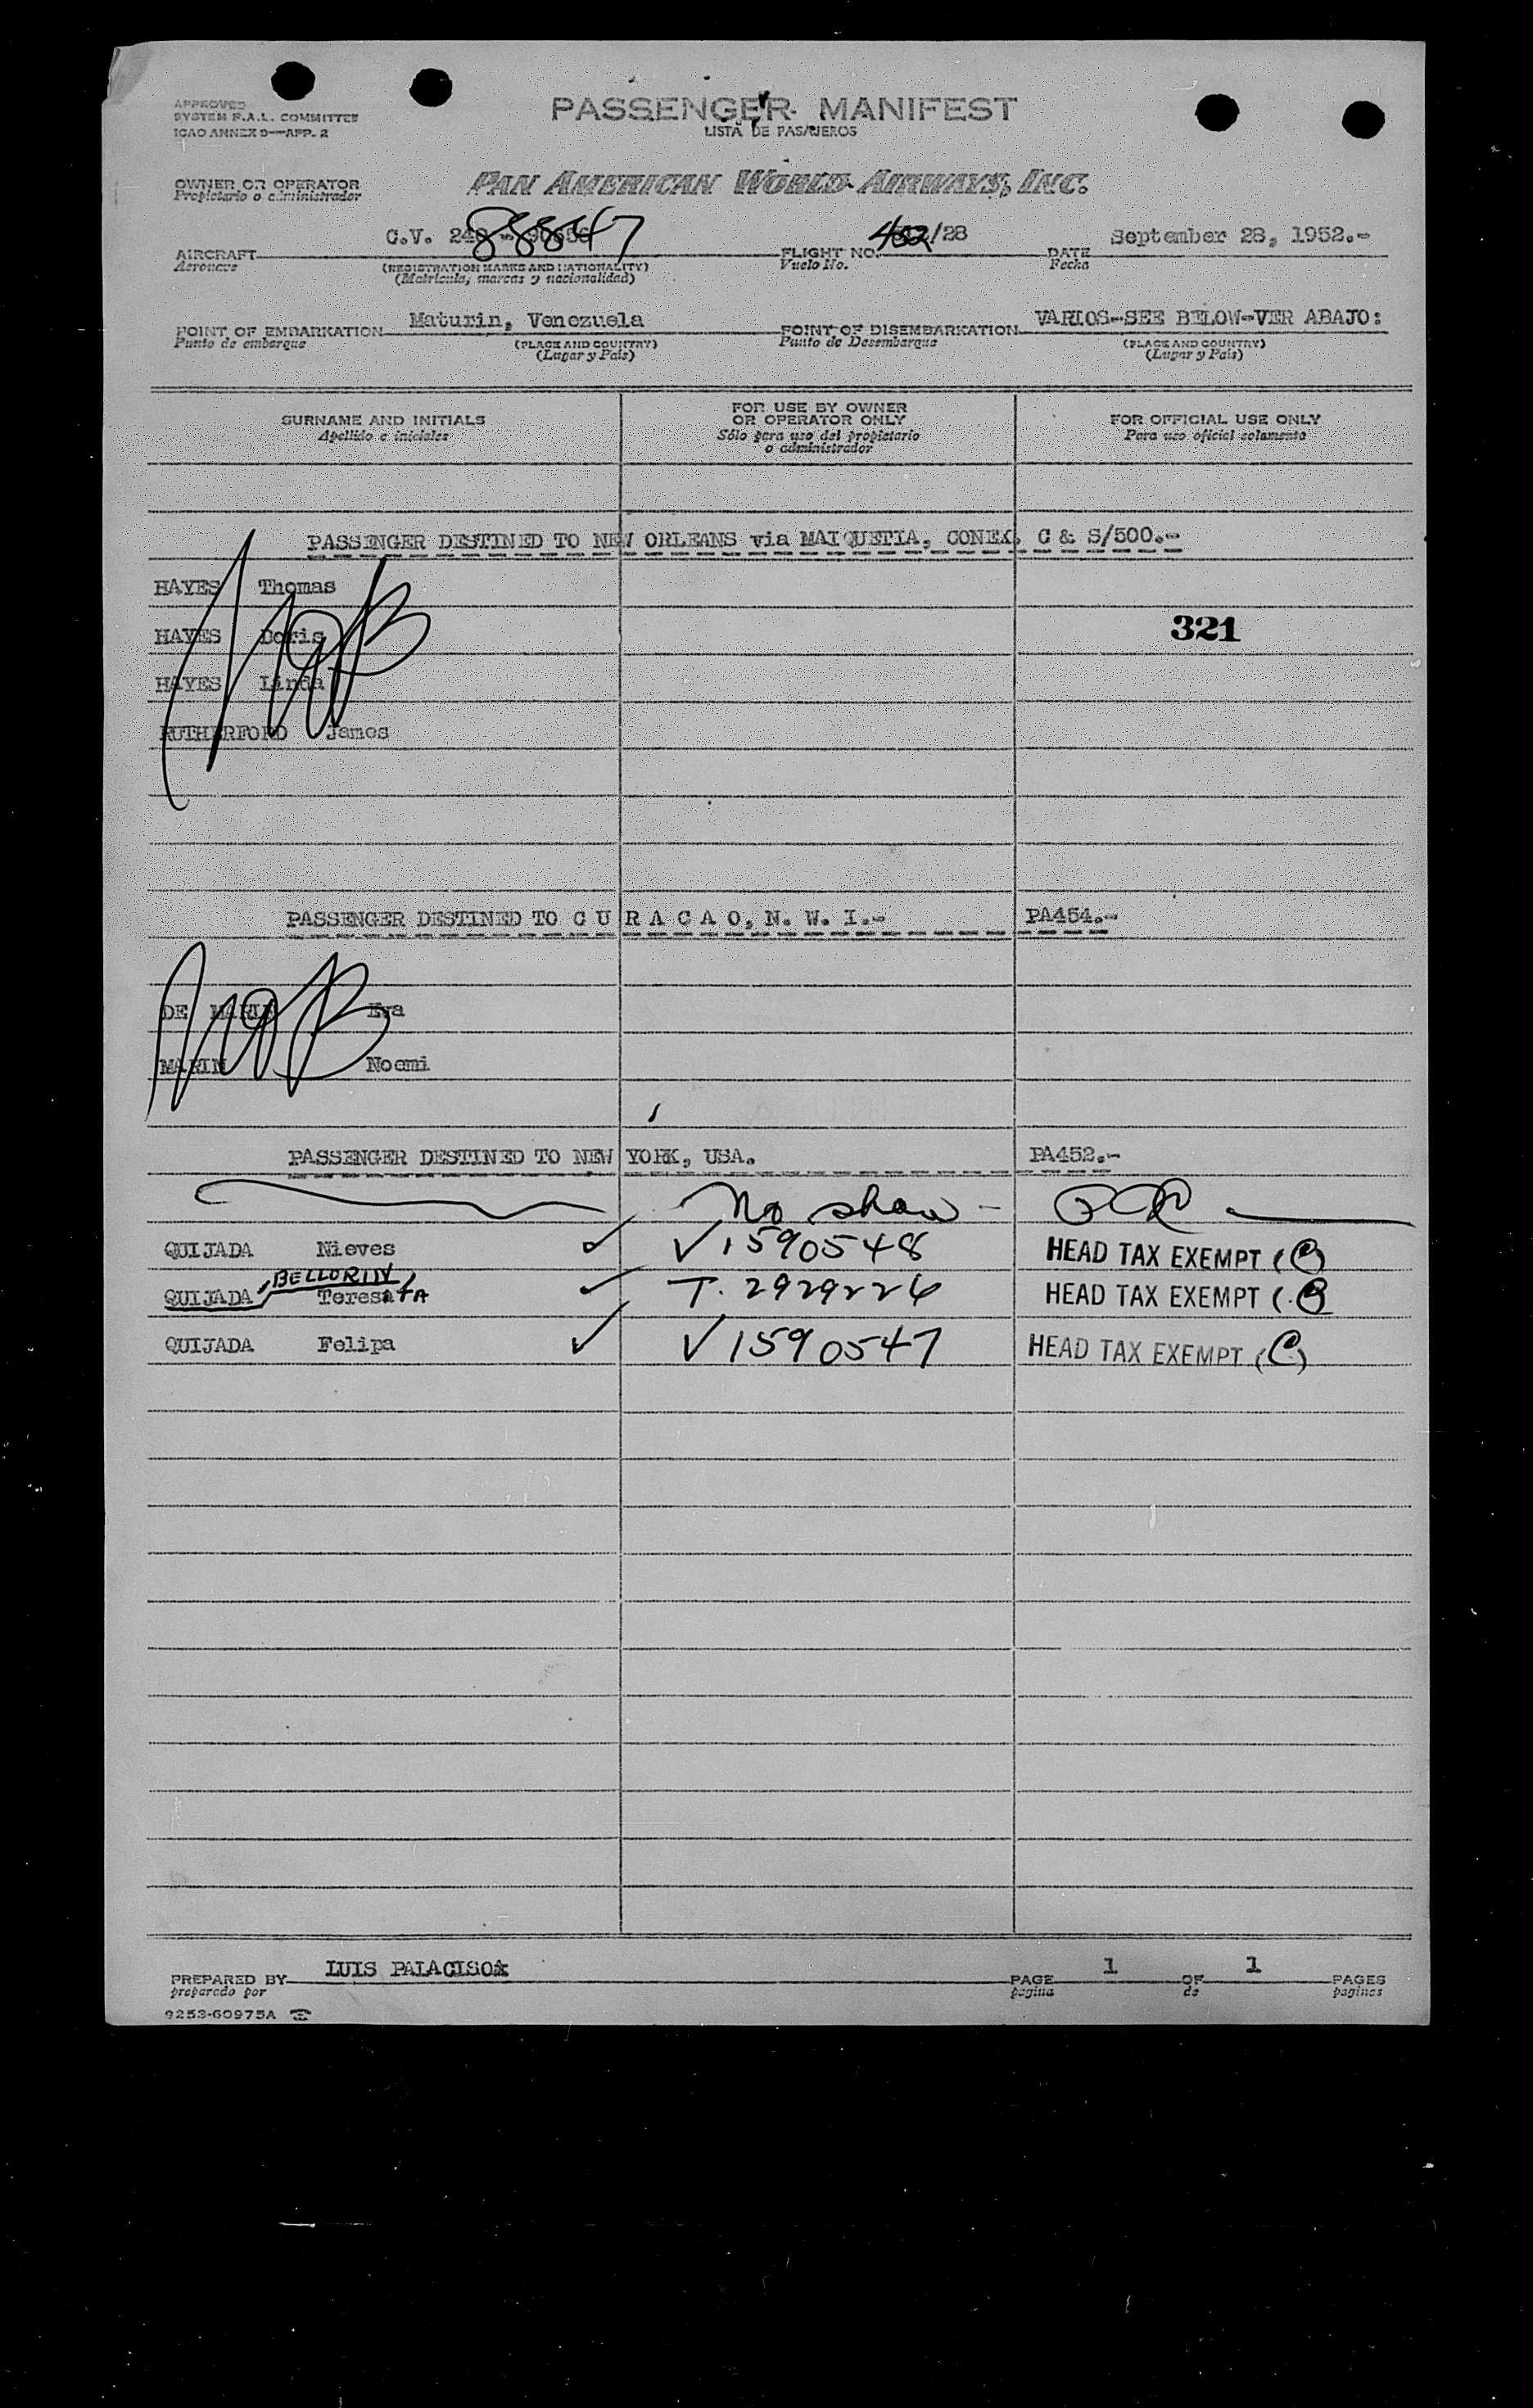 APPROVED
SYSTEM F.A.L. COMMITTEE
ICAO ANNEX 9—APP. 2
PASSENGER MANIFEST
LISTA DE PASAJEROS
OWNER OR OPERATOR
Propietario o administrador
PAN AMERICAN WORLD AIRWAYS, INC.
AIRCRAFT C.V. 240 88847
Aeronave
(REGISTRATION MARKS AND NATIONALITY)
(Matricula, marcas y nacionalidad)
FLIGHT NO. 452/28
Vuelo No.
DATE September 28, 1952.-
Fecha
POINT OF EMBARKATION Maturin, Venezuela
Punto de embarque
(PLACE AND COUNTRY)
(Lugar y País)
POINT OF DISEMBARKATION VARIOS-SEE BELOW-VER ABAJO:
Punto de Desembarque
(PLACE AND COUNTRY)
(Lugar y País)
SURNAME AND INITIALS
Apellido e iniciales
FOR USE BY OWNER
OR OPERATOR ONLY
Sólo para uso del propietario
o administrador
FOR OFFICIAL USE ONLY
Para uso oficial solamente
PASSENGER DESTINED TO NEW ORLEANS via MAIQUETIA, CONEX. C & S/500.-
HAYES Thomas
HAYES Doris
321
HAYES Linda
RUTHERFORD James
PASSENGER DESTINED TO C U R A C A O, N. W. I.- PA454.-
DE MARIN Eva
MARIN Noemi
PASSENGER DESTINED TO NEW YORK, USA. PA452.-
No show -
QUIJADA Nieves ✓ V1590548 HEAD TAX EXEMPT (C)
BELLORIN,
QUIJADA Teresita ✓ T. 2929226 HEAD TAX EXEMPT (C)
QUIJADA Felipa ✓ V1590547 HEAD TAX EXEMPT (C)
PREPARED BY LUIS
preparado por
PAGE 1 OF 1 PAGES
pagina de paginas
9253-60975A